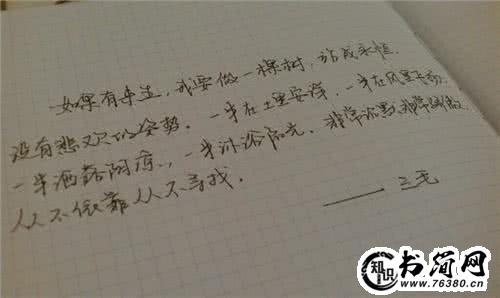 如果有来生,我要做一棵树,站成永恒.
没有悲欢的姿势.一半在土里安详,一半在风里飞扬.
一半洒落阴凉,一半沐浴阳光.非常沉默非常骄傲.
从不依靠从不寻找.
——三毛
知识 书简网
www.76380.cn